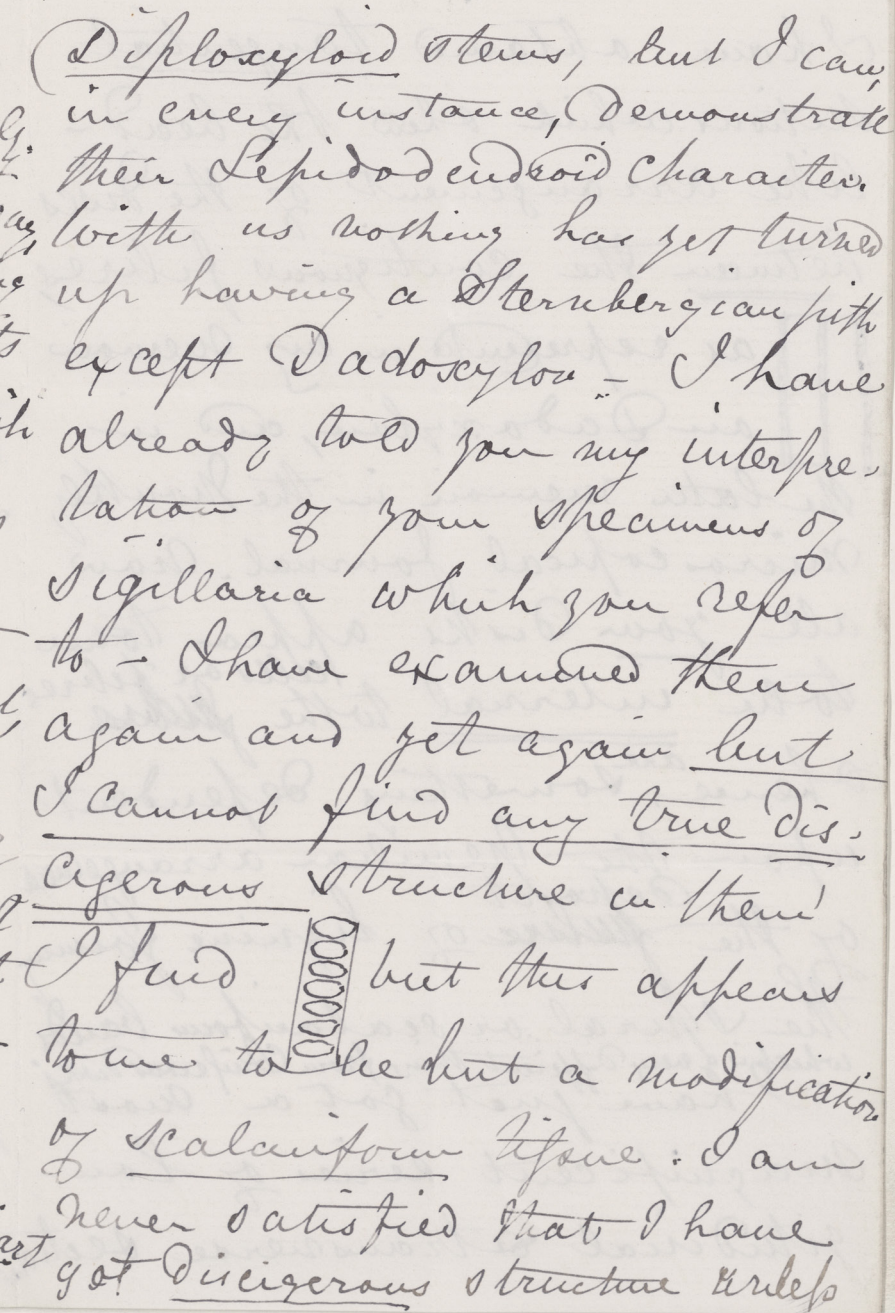 Diploxyloid stems, but I can,
in every instance, demonstrate
their Lepidodendroid character.
With us nothing has yet turned
up having a Sternbergian pith
except Dadoxylon - I have
already told you my interpre-
tation of your specimens of
Sigillaria which you refer
to - I have examined them
again and yet again but
I cannot find any true dis-
cigerous structure in them!
I find but this appears
to me to be but a modification
of scalariform tissue. I am
never satisfied that I have
got discigerous structure unless